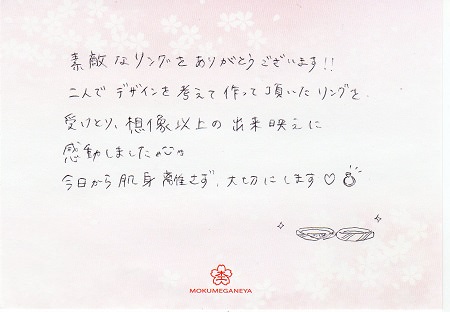 素敵なリングをありがとうございます!!
二人でデザインを考えて作って頂いたリングを、
受けとり、想像以上の出来映えに
感動しました。
今日から肌身離さず、大切にします♡
MOKUMEGANEYA